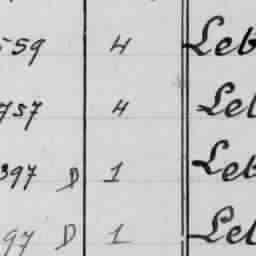 559 4 Leb
757 4 Leb
397 D 1 Leb
97 D 1 Leb